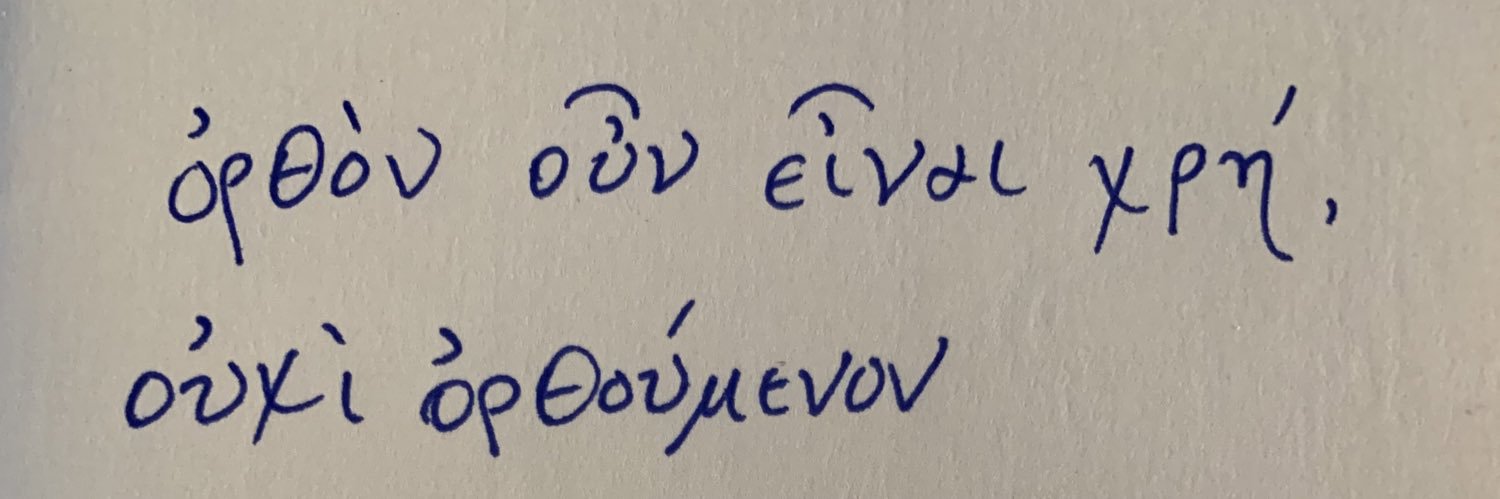 ὀρθὸν οὖν εἶναι χρή,
οὐχὶ ὀρθούμενον